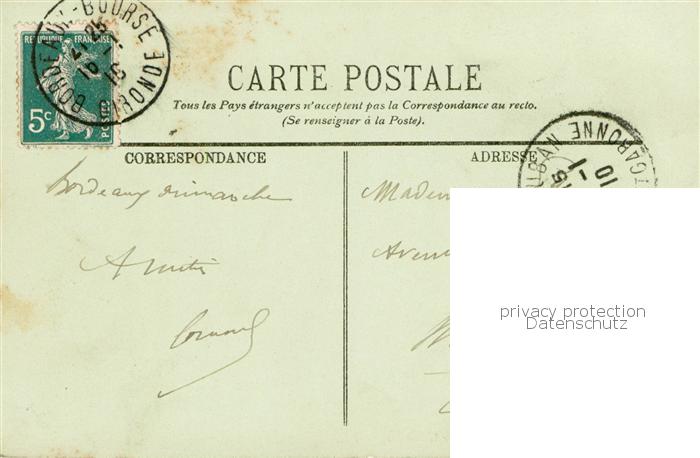 BORDEAUX-BOURSE GIRONDE
16 -1 10
REPUBLIQUE FRANÇAISE
5c
POSTES
CARTE POSTALE
Tous les Pays étrangers n'acceptent pas la Correspondance au recto.
(Se renseigner à la Poste).
CORRESPONDANCE
ADRESSE
GARONNE
-1
10
Bordeaux dimanche
Amitié
Madem
Aven
privacy protection
Datenschutz